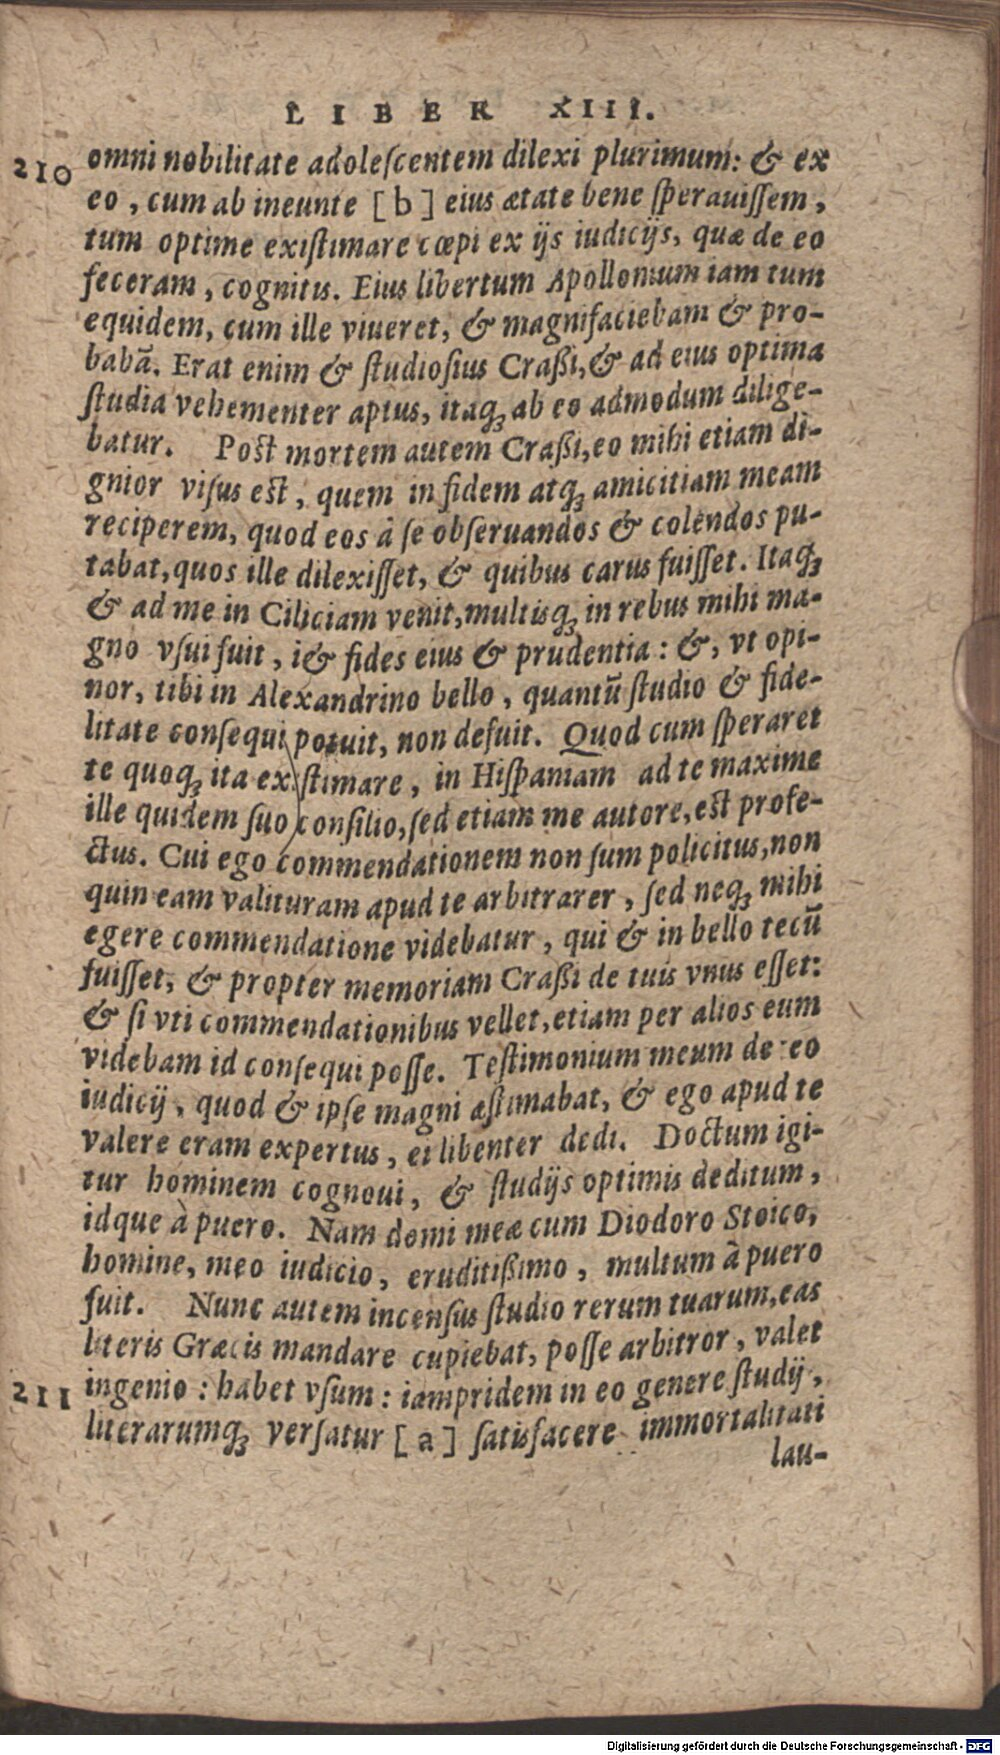 LIBER XIII.
210 omni nobilitate adoleſcentem dilexi plurimum: & ex
eo, cum ab ineunte [b] eius ætate bene ſperauiſſem,
tum optime exiſtimare cœpi ex ijs iudicijs, quæ de eo
feceram, cognitis. Eius libertum Apollonium iam tum
equidem, cum ille viueret, & magnifaciebam & pro-
babã. Erat enim & ſtudioſius Craßi, & ad eius optima
ſtudia vehementer aptus, itaq; ab eo admodum dilige-
batur. Poſt mortem autem Craßi, eo mihi etiam di-
gnior viſus eſt, quem in fidem atq; amicitiam meam
reciperem, quod eos à ſe obſeruandos & colendos pu-
tabat, quos ille dilexiſſet, & quibus carus fuiſſet. Itaq;
& ad me in Ciliciam venit, multisq; in rebus mihi ma-
gno vſui fuit, i& fides eius & prudentia: &, vt opi-
nor, tibi in Alexandrino bello, quantũ ſtudio & fide-
litate conſequi potuit, non defuit. Quod cum ſperaret
te quoq; ita exiſtimare, in Hiſpaniam ad te maxime
ille quidem ſuo conſilio, ſed etiam me autore, eſt profe-
ctus. Cui ego commendationem non ſum policitus, non
quin eam valituram apud te arbitrarer, ſed neq; mihi
egere commendatione videbatur, qui & in bello tecũ
fuiſſet, & propter memoriam Craßi de tuis vnus eſſet:
& ſi vti commendationibus vellet, etiam per alios eum
videbam id conſequi poſſe. Teſtimonium meum de eo
iudicij, quod & ipſe magni æſtimabat, & ego apud te
valere eram expertus, ei libenter dedi. Doctum igi-
tur hominem cognoui, & ſtudijs optimis deditum,
idque à puero. Nam domi meæ cum Diodoro Stoico,
homine, meo iudicio, eruditißimo, multum à puero
fuit. Nunc autem incenſus ſtudio rerum tuarum, eas
literis Græcis mandare cupiebat, poſſe arbitror, valet
211 ingenio: habet vſum: iampridem in eo genere ſtudij,
literarumq; verſatur [a] ſatisfacere immortalitati
lau-
Digitalisierung gefördert durch die Deutsche Forschungsgemeinschaft - DFG